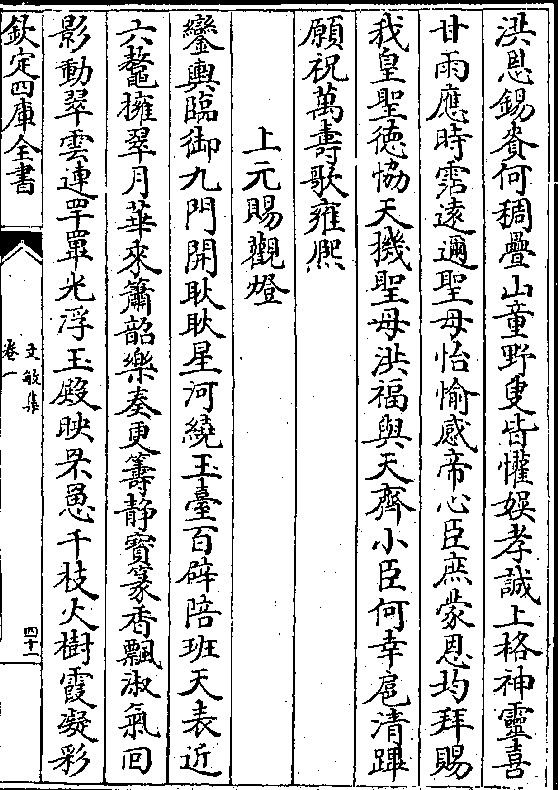 洪恩錫賚何稠疊山童野叟皆懽娱孝誠上格神靈喜
甘雨應時霑遠邇聖母怡愉感帝心臣庶蒙恩均拜賜
我皇聖徳恊天機聖母洪福與天齊小臣何幸扈清蹕
願祝萬壽歌雍熈
上元賜觀燈
鑾輿臨御九門開耿耿星河繞玉臺百辟陪班天表近
六鼇擁翠月華來簫韶樂奏更籌静寳篆香飄淑氣回
影動翠雲連罕罼光浮玉殿映罘罳千枝火樹霞凝彩
欽定四庫全書
文敏集
卷一
四十一